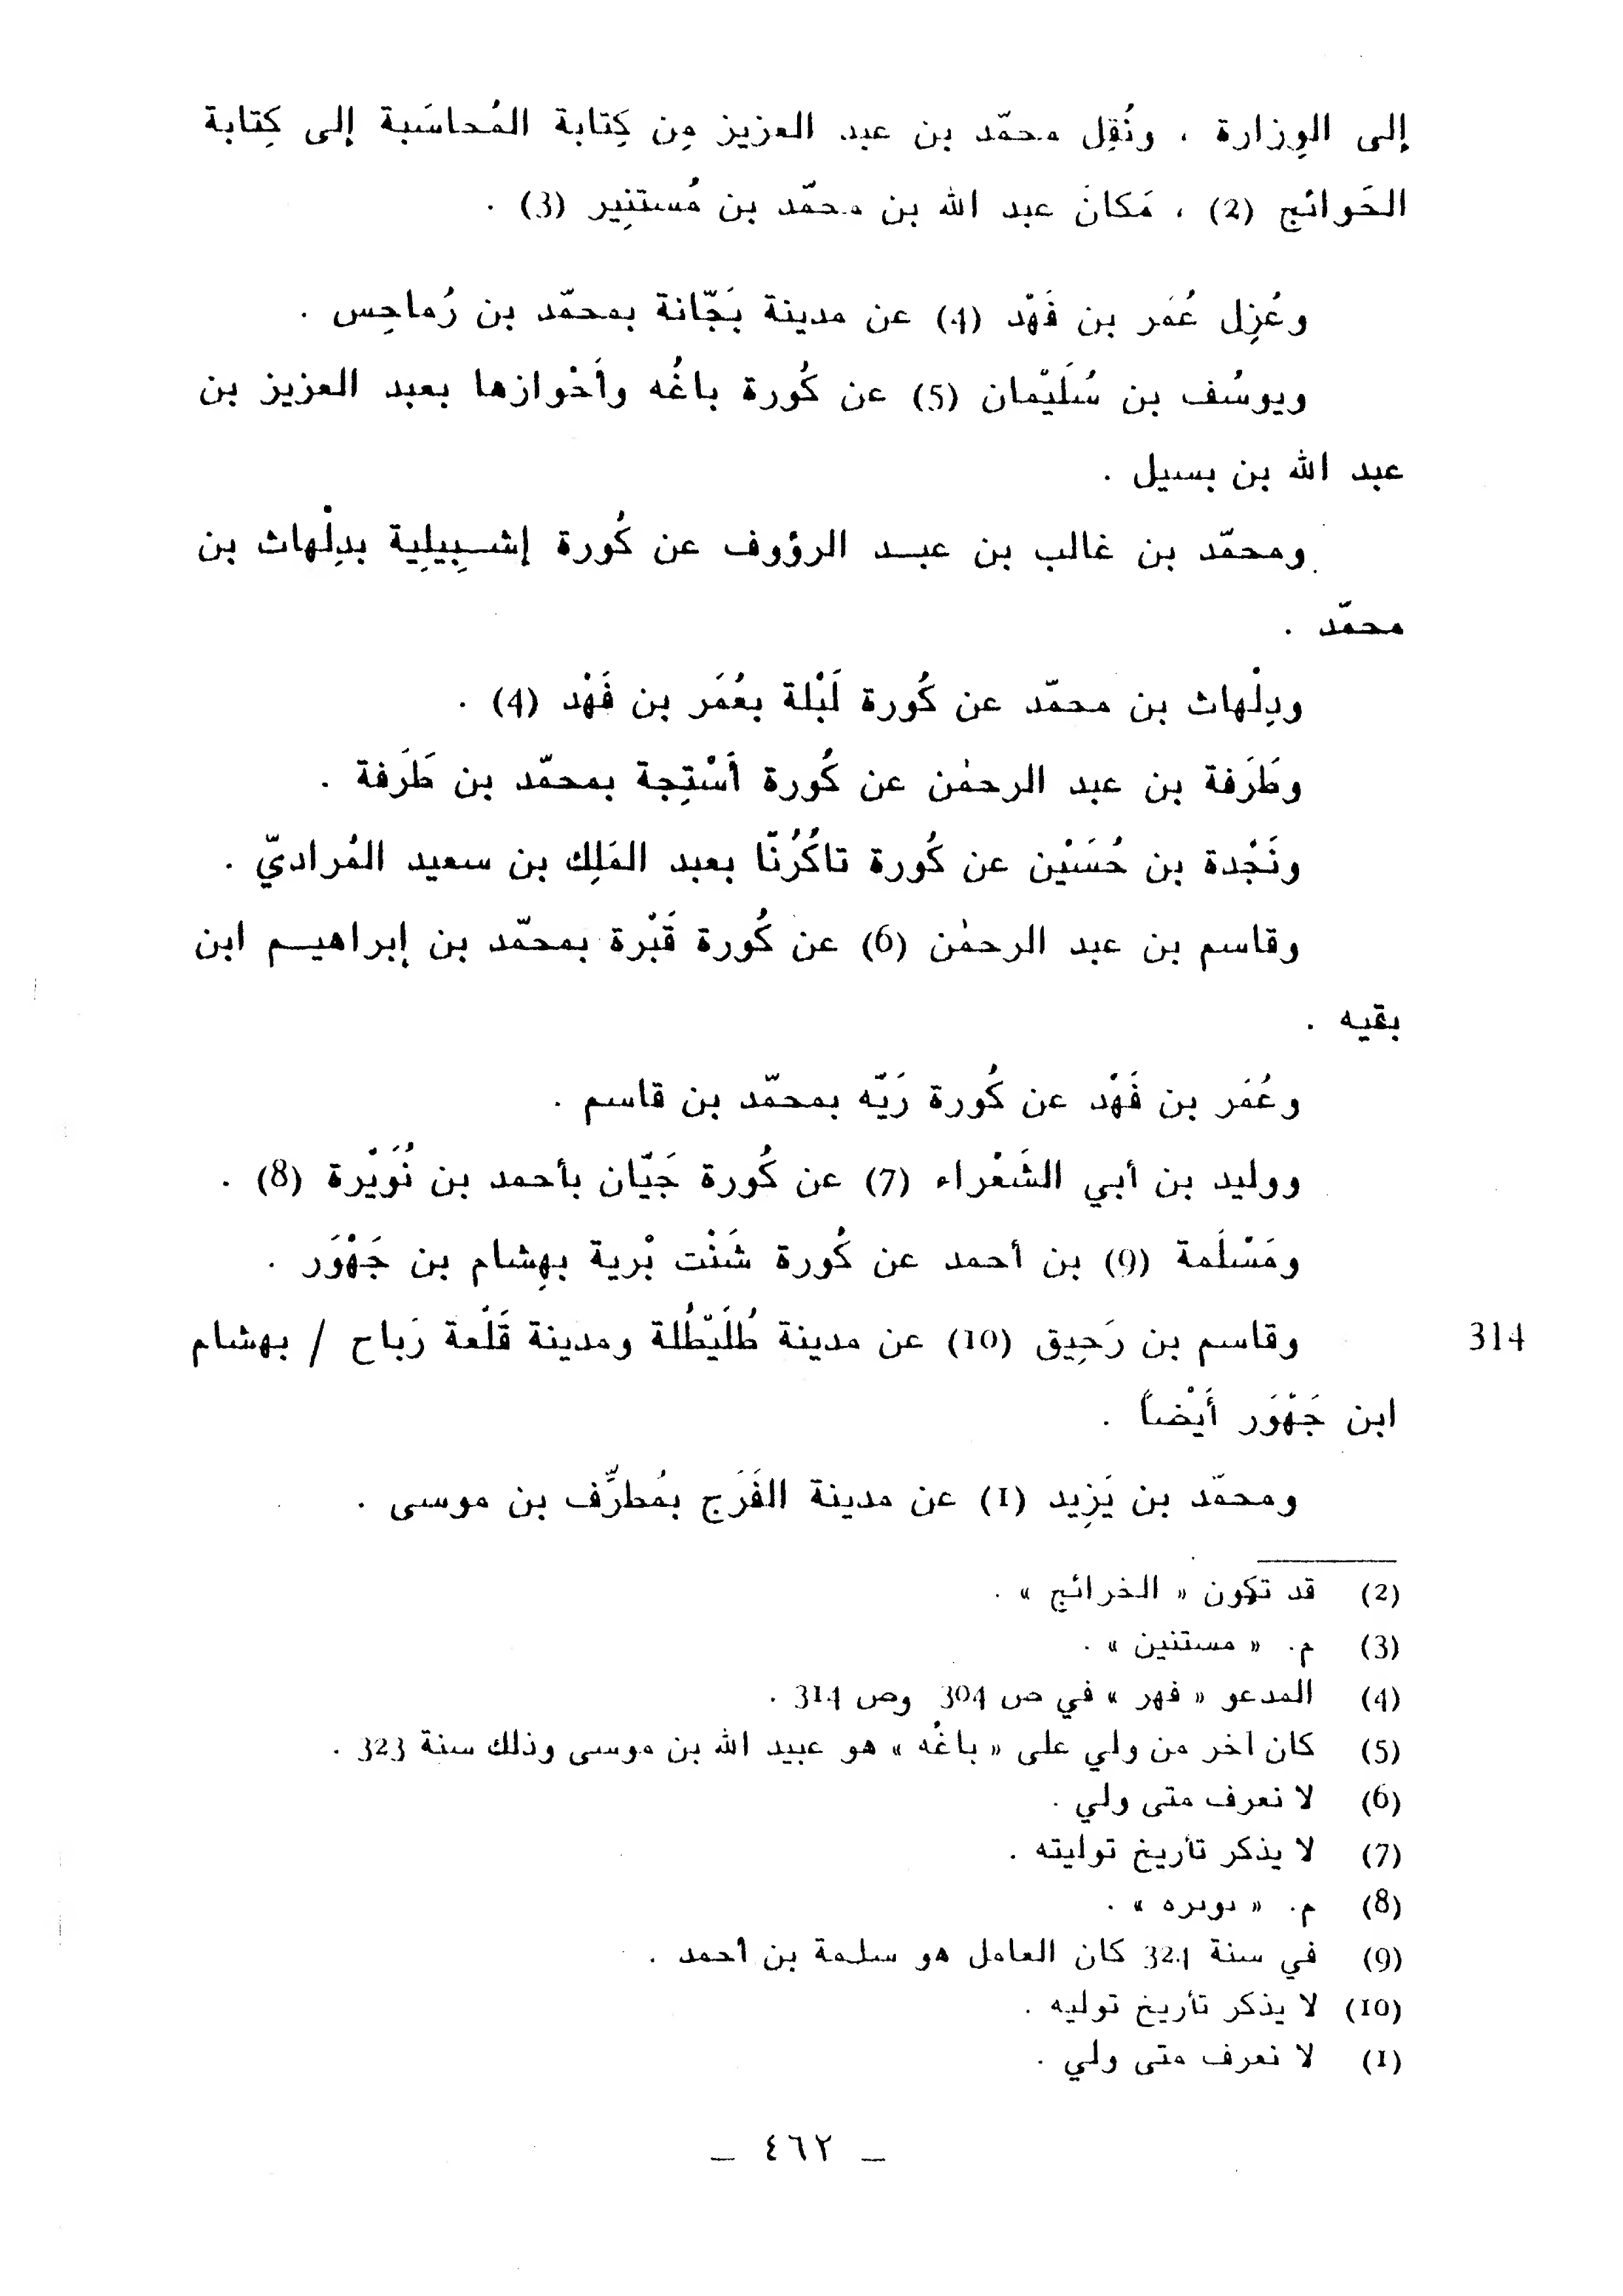 إلى الوِزارة ، ونُقِل محمّد بن عبد العزيز مِن كِتابة المُحاسَبة إلى كِتابة
الحَوائج (2) ، مَكانَ عبد الله بن محمّد بن مُستنِير (3) .
وعُزِل عُمَر بن فَهْد (4) عن مدينة بَجّانة بمحمّد بن رُماحِس .
ويوسُف بن سُلَيْمان (5) عن كُورة باغُه وأَحْوازها بعبد العزيز بن
عبد الله بن بسيل .
ومحمّد بن غالب بن عبد الرؤوف عن كُورة إشبِيلِية بدِلْهاث بن
محمّد .
ودِلْهاث بن محمّد عن كُورة لَبْلة بعُمَر بن فَهْد (4) .
وطَرَفة بن عبد الرحمٰن عن كُورة أَسْتِجة بمحمّد بن طَرَفة .
ونَجْدة بن حُسَيْن عن كُورة تاكُرُنّا بعبد المَلِك بن سعيد المُراديّ .
وقاسم بن عبد الرحمٰن (6) عن كُورة قَبْرة بمحمّد بن إبراهيم ابن
بقيه .
وعُمَر بن فَهْد عن كُورة رَيّه بمحمّد بن قاسم .
ووليد بن أبي الشَعْراء (7) عن كُورة جَيّان بأحمد بن نُوَيْرة (8) .
ومَسْلَمة (9) بن أحمد عن كُورة شَنْت بْرية بهِشام بن جَهْوَر .
وقاسم بن رَحِيق (10) عن مدينة طُلَيْطُلة ومدينة قَلْعة رَباح / بهشام 314
ابن جَهْوَر أَيْضاً .
ومحمّد بن يَزِيد (1) عن مدينة الفَرَج بمُطرِّف بن موسى .
(2) قد تكون « الخرائج » .
(3) م. « مستنين » .
(4) المدعو « فهر » في ص 304 وص 314 .
(5) كان آخر من ولي على « باغُه » هو عبيد الله بن موسى وذلك سنة 323 .
(6) لا نعرف متى ولي .
(7) لا يذكر تأريخ توليته .
(8) م. « ٮوٮره » .
(9) في سنة 324 كان العامل هو سلمة بن أحمد .
(10) لا يذكر تأريخ توليه .
(1) لا نعرف متى ولي .
— ٤٦٢ —